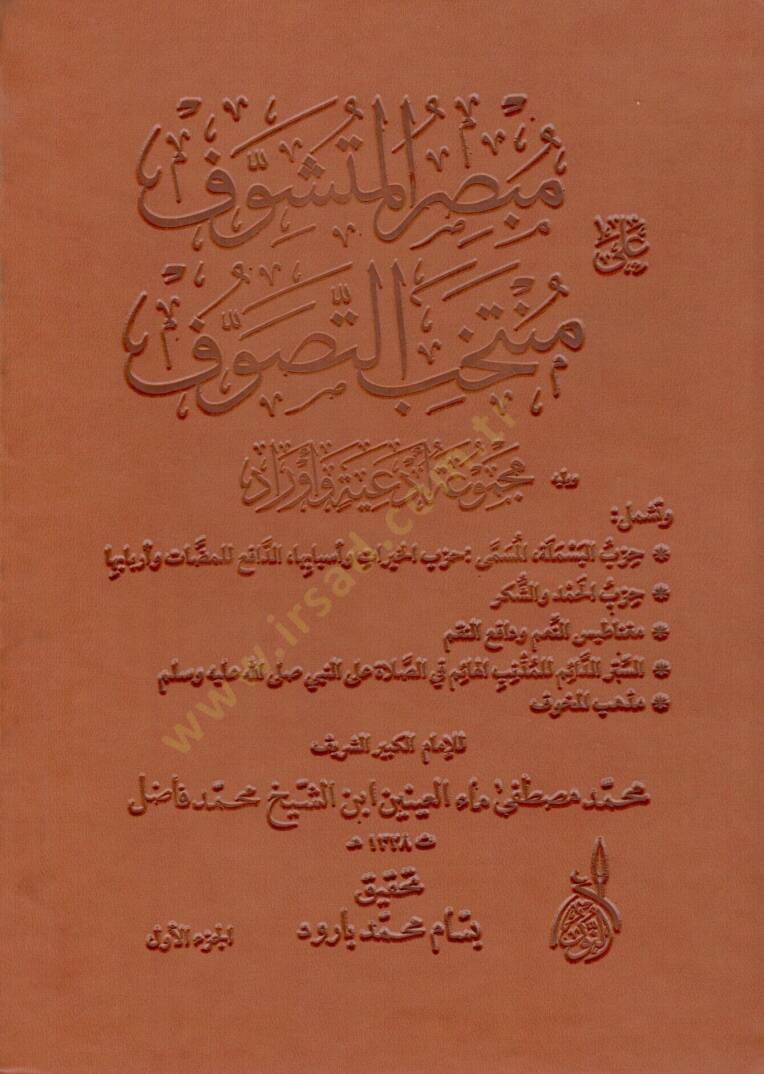 مُبْصِرُ المُتَشَوِّفْ
عَلَى
مُنْتَخَبِ التَّصَوُّفْ
ويليه مجموعة أدعية وأوراد
وتشمل:
* حِزْبُ البَسْمَلَة، المُسَمَّى: حزب الخيرات وأسبابها، الدَّافع للمضَّات وأربابها
* حِزْبُ الحَمْد والشُّكر
* مغناطيس النِّعم ودافع النقم
* السَّيْر الدَّائِم للمُذْنِبِ الهائِم في الصَّلاة على النبي صلى الله عليه وسلم
* مذهب المخوف
للإمام الكبير الشريف
محمَّد مصطفى ماء العينين ابن الشَّيخ محمَّد فاضل
ت ١٣٢٨ هـ
تحقيق
بسَّام محمَّد بارود
الجزء الأول
النور
www.irsad.com.tr